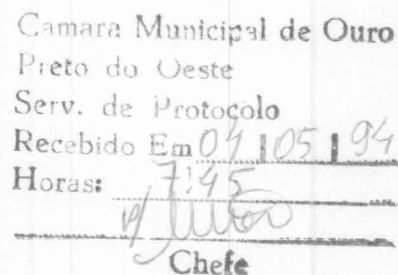 Camara Municipal de Ouro
Preto do Oeste
Serv. de Protocolo
Recebido Em 04 | 05 | 94
Horas: 7:45
Chefe